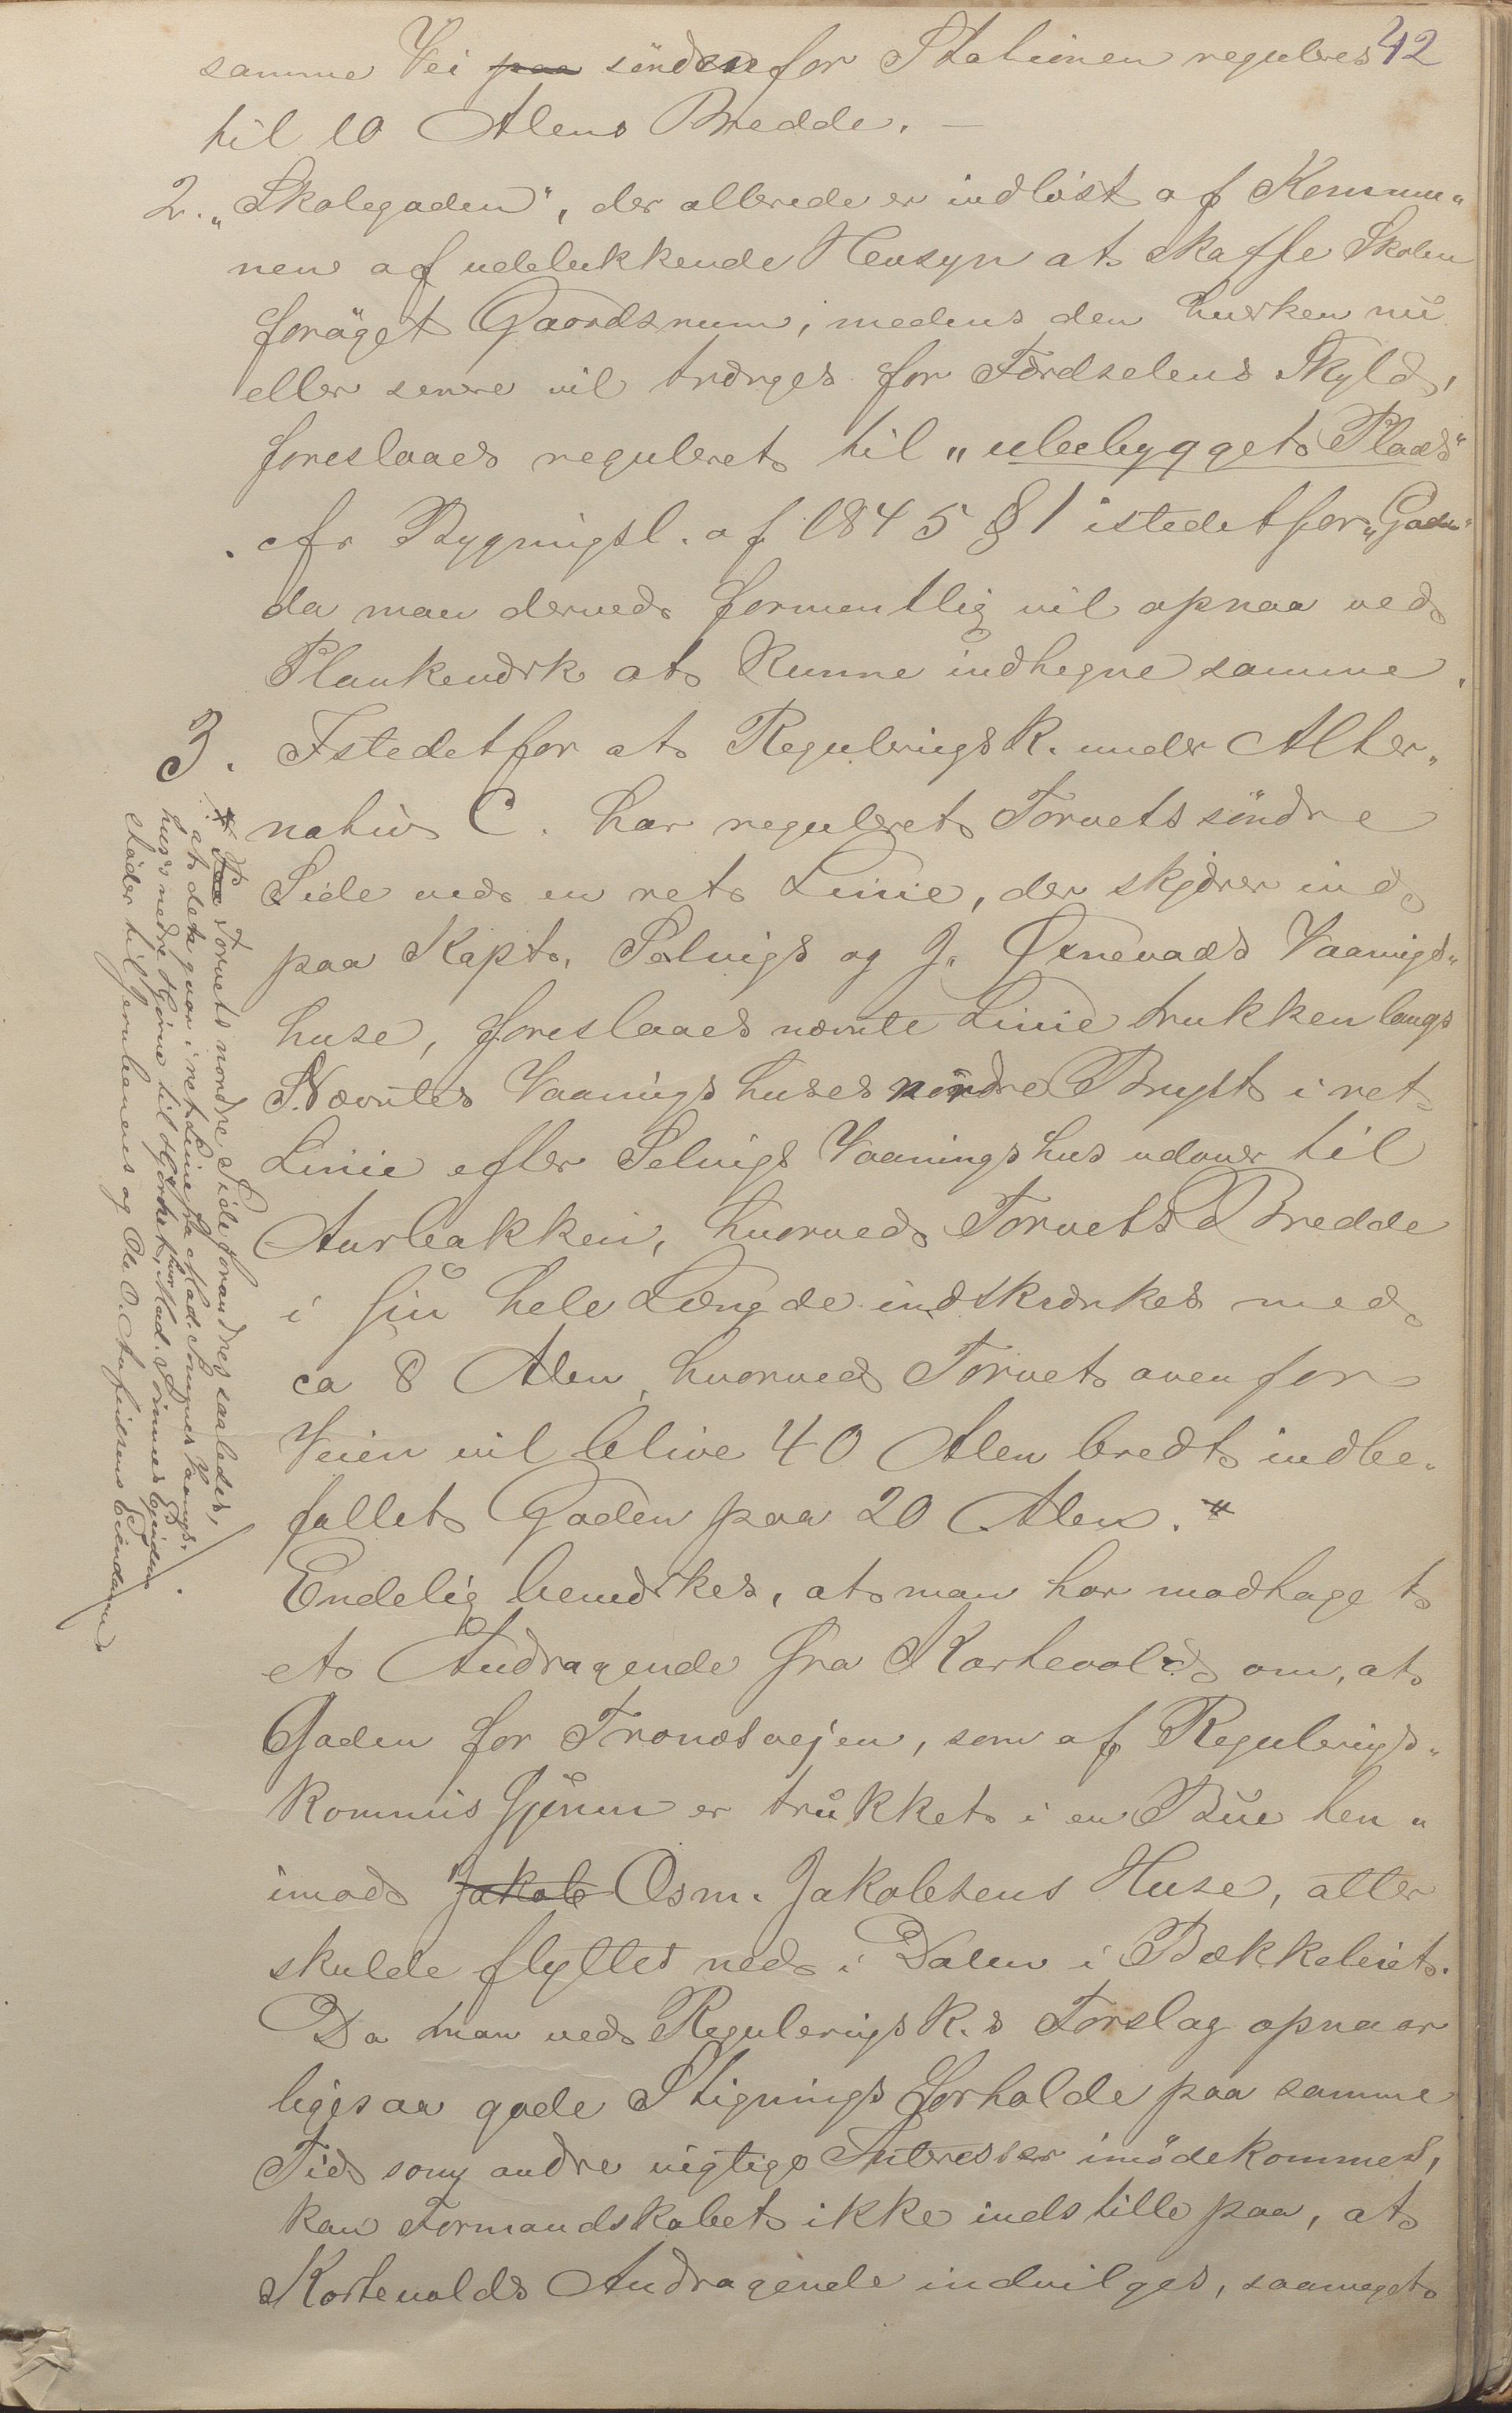 42
samme Vei paa söndenfor Stationen reguleres
til 10 Alens Bredde. —
2. „Skolegaden“, der allerede er indlöst af Kommu„
nen af udelukkende Hensyn at skaffe Skolen
foröget Gaardsrum, medens den hverken nu
eller senere vil trænges for Færdselens Skyld,
foreslaaes reguleret til „ubebygget Plads“
cfr Bygningsl. af 1845 § 1 istedetfor „Gade“
da man derved formentlig vil opnaa ved
Plankeværk at kunne indhegne samme.
3. Istedetfor at Regulerings K. under Alter„
nativ C. har reguleret Torvets söndre
Side ved en ret Linie, der skjærer ind
paa Kapt. Selvigs og J. Ørnevads Vaanings„
huse, foreslaaes nævnte Linie trukken langs
Nævntes Vaaningshuses nördre Bryst i ret
Linie efter Selvigs Vaaningshus udover til
Aurbakken, hvorved Torvets Bredde
i sin hele Længde indskrænkes med
ca 8 Alen, hvorved Torvet ovenfor
Veien vil blive 40 Alen bredt indbe„
fattet Gaden paa 20 Alen. #
Endelig bemærkes, at man har modtaget
et Andragende fra Kortevold om, at
Gaden for Trondsvejen, som af Regulerings„
kommissjönen er trukket i en Bue hen„
imod Jakob Osm. Jakobsens Huse, atter
skulde flyttes ned i Dalen i Bækkeleiet.
Da man ved Regulerings K.s Forslag opnaar
ligesaa gode Stigningsforholde paa samme
Tid som andre vigtige Interesser imödekommes,
kan Formandskabet ikke indstille paa, at
Kortevolds Andragende indvilges, saameget
# Paa Torvets nordre Side forandres saaledes,
at dette gaar i ret Linie fra Mad. Sömmes Vaanings„
hus's nedre Hjörne til Hjörnet, hvor Mad. Sömmes Eiendom
stöder til Jernbanens og Ole O. Aufindsens Eiendomme